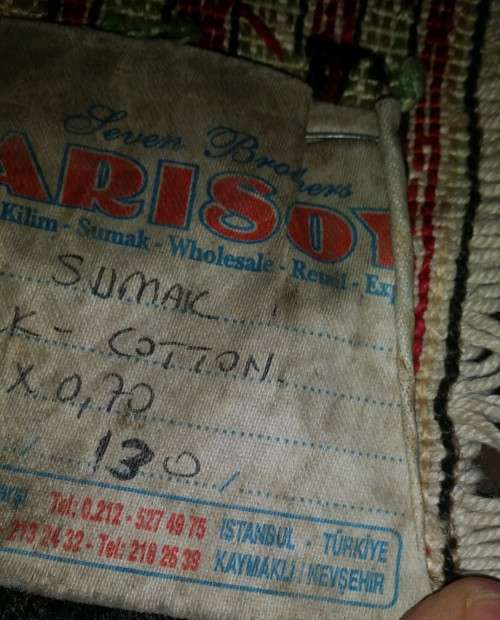 Seven Brothers
ARISOY
Kilim - Sumak - Wholesale - Retail - Exp
SUMAK
K - COTTON
X 0,70
/ 130 /
Tel: 0.212 - 527 49 75 İSTANBUL - TÜRKİYE
213 24 32 - Tel: 218 26 39 KAYMAKLI / NEVŞEHİR